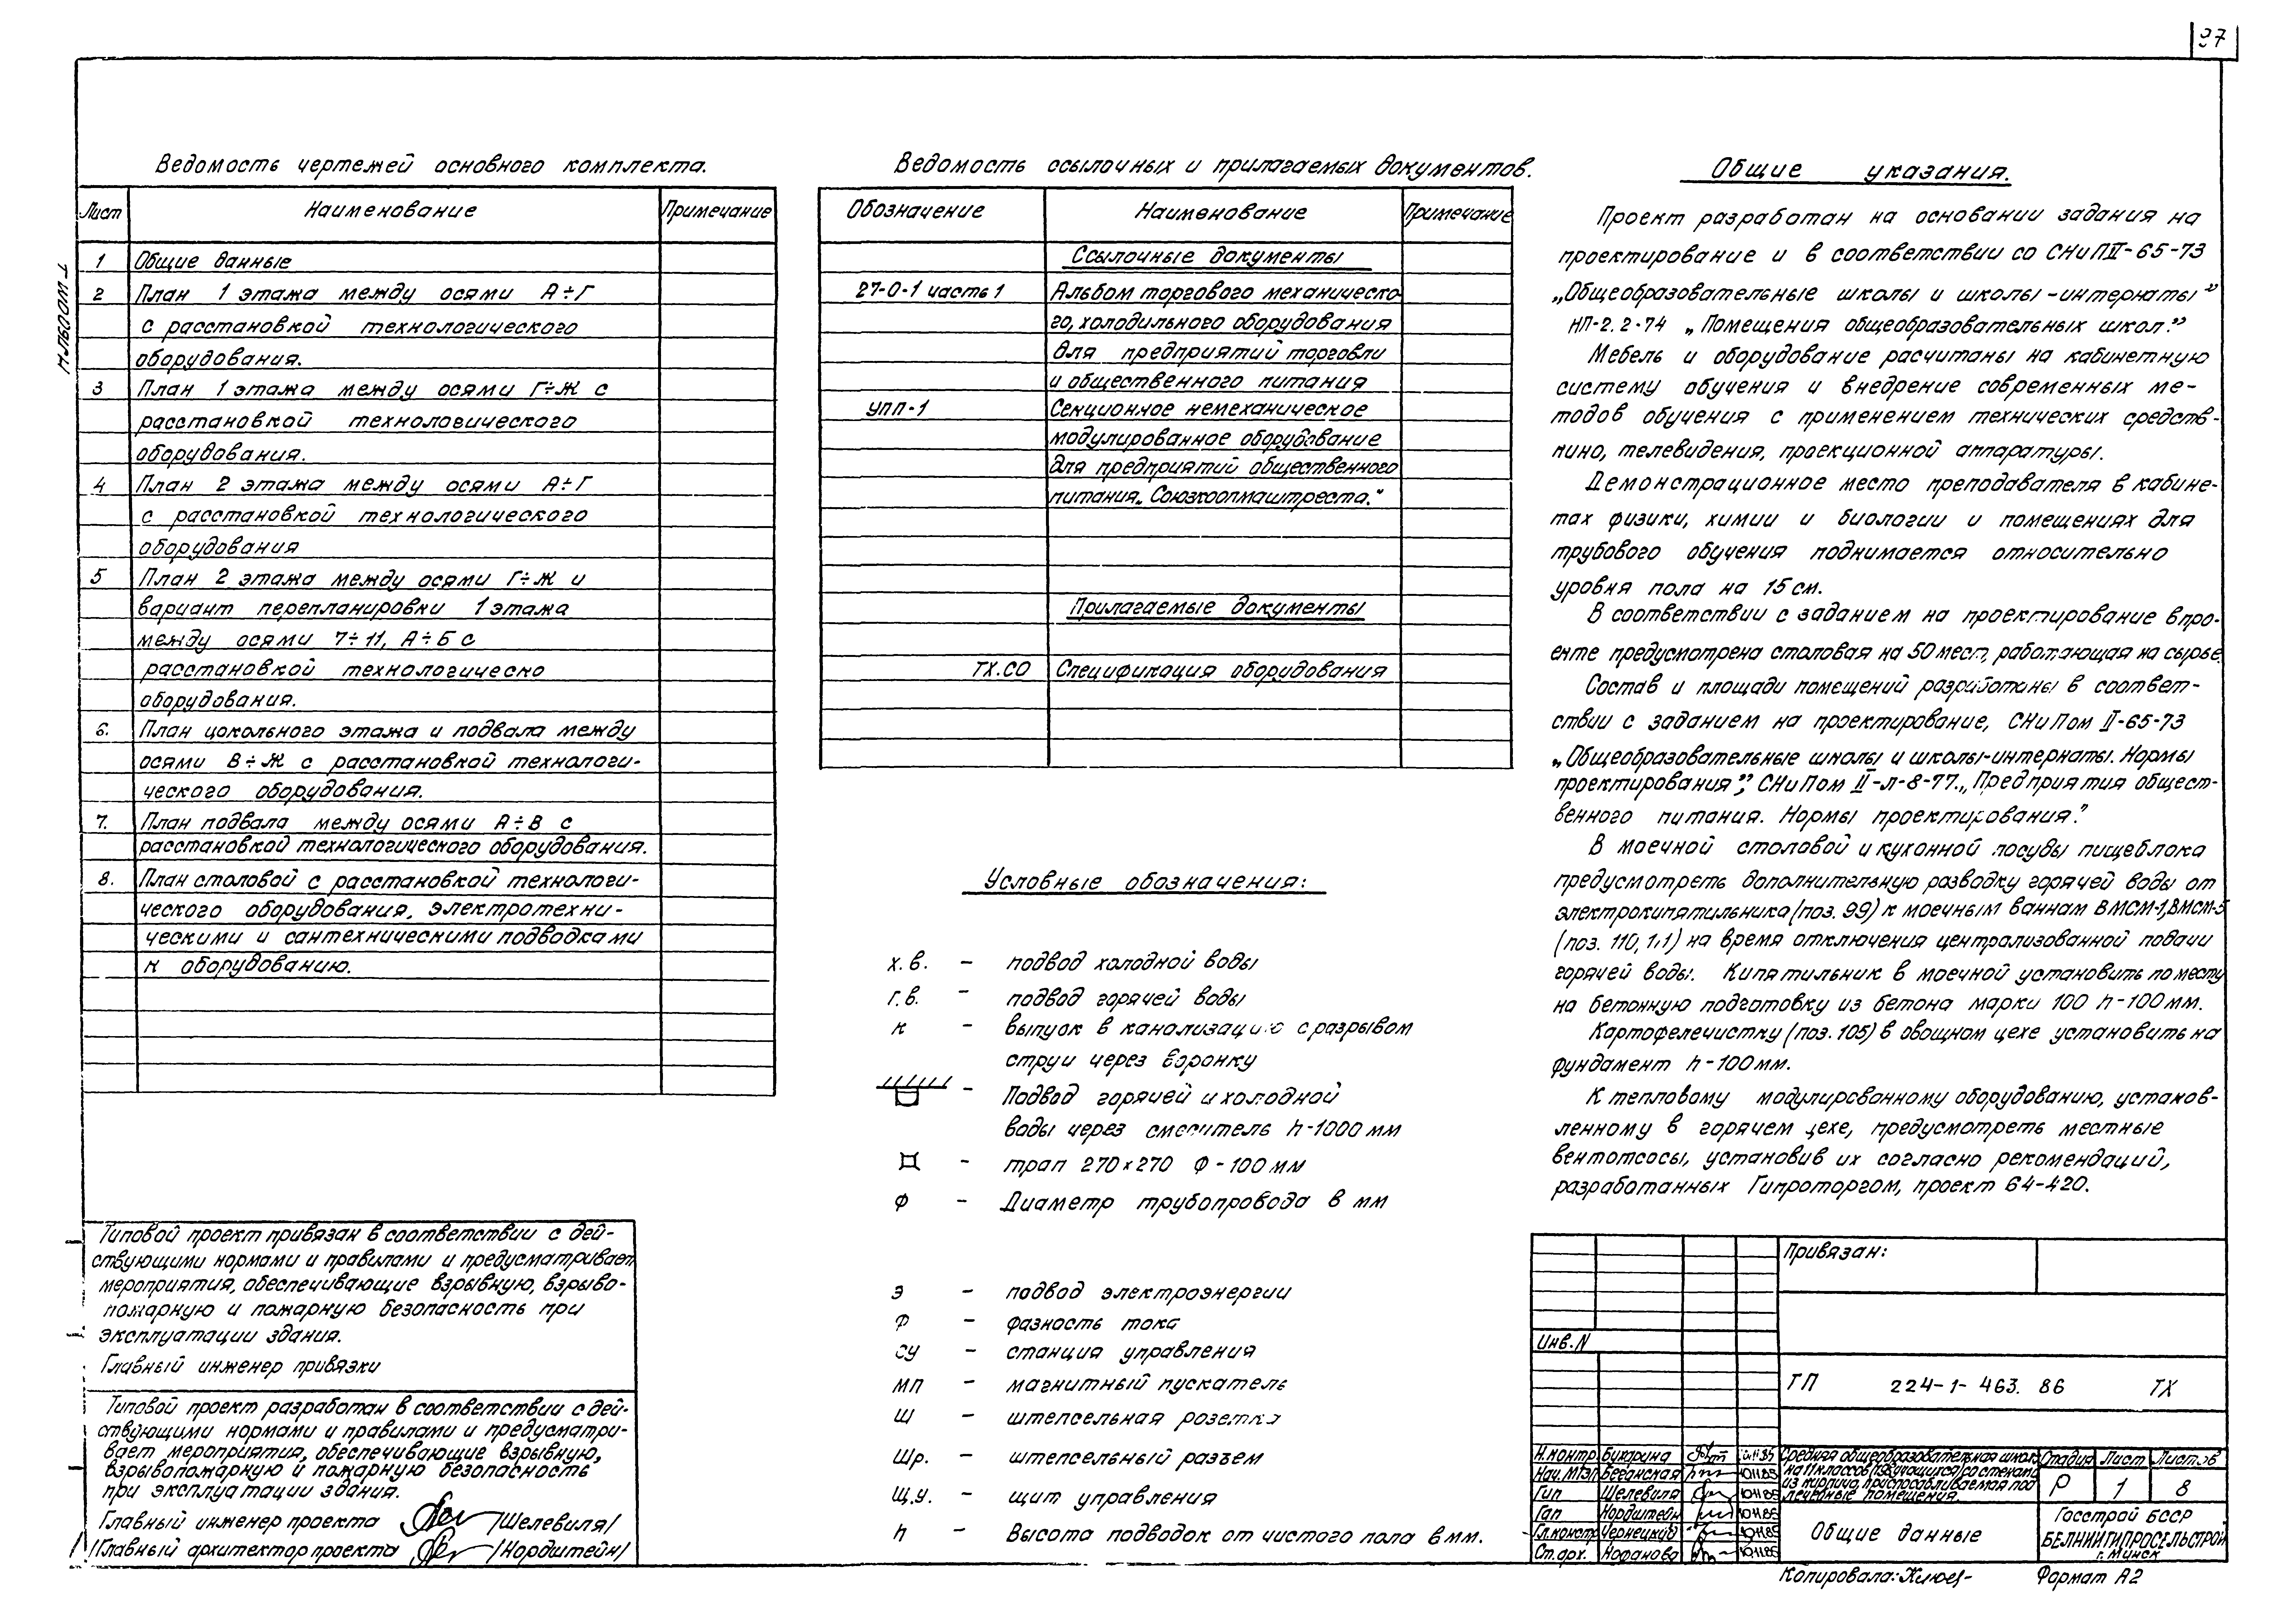 97
Альбом I
Ведомость чертежей основного комплекта.
Лист Наименование Примечание
1 Общие данные
2 План 1 этажа между осями А÷Г
с расстановкой технологического
оборудования.
3 План 1 этажа между осями Г÷Ж с
расстановкой технологического
оборудования.
4 План 2 этажа между осями А÷Г
с расстановкой технологического
оборудования
5 План 2 этажа между осями Г÷Ж и
вариант перепланировки 1 этажа
между осями 7÷11, А÷Б с
расстановкой технологическо
оборудования.
6. План цокольного этажа и подвала между
осями В÷Ж с расстановкой технологи-
ческого оборудования.
7. План подвала между осями А÷В с
расстановкой технологического оборудования.
8. План столовой с расстановкой технологи-
ческого оборудования, электротехни-
ческими и сантехническими подводками
к оборудованию.
Типовой проект привязан в соответствии с дей-
ствующими нормами и правилами и предусматривает
мероприятия, обеспечивающие взрывную, взрыво-
пожарную и пожарную безопасность при
эксплуатации здания.
Главный инженер привязки
Типовой проект разработан в соответствии с дей-
ствующими нормами и правилами и предусматри-
вает мероприятия, обеспечивающие взрывную,
взрывопожарную и пожарную безопасность
при эксплуатации здания.
Главный инженер проекта /Шелевиля/
Главный архитектор проекта /Нордштейн/
Ведомость ссылочных и прилагаемых документов.
Обозначение Наименование Примечание
Ссылочные документы
27-0-1 часть 1 Альбом торгового механическо
го, холодильного оборудования
для предприятий торговли
и общественного питания
УПП-1 Секционное немеханическое
модулированное оборудование
для предприятий общественного
питания „Союзкоопмаштреста."
Прилагаемые документы
ТХ.СО Спецификация оборудования
Условные обозначения:
х.в. - подвод холодной воды
г.в. - подвод горячей воды
к - выпуск в канализацию с разрывом
струи через воронку
- Подвод горячей и холодной
воды через смеситель h-1000 мм
- трап 270×270 Ф-100 мм
Ф - Диаметр трубопровода в мм
Э - подвод электроэнергии
Ф - фазность тока
СУ - станция управления
МП - магнитный пускатель
Ш - штепсельная розетка
Шр. - штепсельный разъем
Щ.У. - щит управления
h - Высота подводок от чистого пола в мм.
Общие указания.
Проект разработан на основании задания на
проектирование и в соответствии со СНиПII-65-73
„Общеобразовательные школы и школы-интернаты"
НП-2.2-74 „Помещения общеобразовательных школ."
Мебель и оборудование расчитаны на кабинетную
систему обучения и внедрение современных ме-
тодов обучения с применением технических средств-
кино, телевидения, проекционной аппаратуры.
Демонстрационное место преподавателя в кабине-
тах физики, химии и биологии и помещениях для
трубового обучения поднимается относительно
уровня пола на 15 см.
В соответствии с заданием на проектирование в про-
екте предусмотрена столовая на 50 мест, работающая на сырье.
Состав и площади помещений разработаны в соответ-
ствии с заданием на проектирование, СНиПом II-65-73
„Общеобразовательные школы и школы-интернаты. Нормы
проектирования", СНиПом II-Л-8-77. „Предприятия общест-
венного питания. Нормы проектирования."
В моечной столовой и кухонной посуды пищеблока
предусмотреть дополнительную разводку горячей воды от
электрокипятильника (поз. 99) к моечным ваннам ВМСМ-1, ВМСМ-5
(поз. 110, 111) на время отключения централизованной подачи
горячей воды. Кипятильник в моечной установить по месту
на бетонную подготовку из бетона марки 100 h-100 мм.
Картофелечистку (поз. 105) в овощном цехе установить на
фундамент h-100 мм.
К тепловому модулированному оборудованию, установ-
ленному в горячем цехе, предусмотреть местные
вентотсосы, установив их согласно рекомендаций,
разработанных Гипроторгом, проект 64-420.
Привязан:
Инв.N
ТП 224-1-463.86 ТХ
Н.контр Бикарина 10.11.85
Нач.МТЭП Беганская 10.11.85
Гип Шелевиля 10.11.85
Гап Нордштейн 10.11.85
Гл.констр Чернецкий 10.11.85
Ст.арх. Нофанова 10.11.85
Средняя общеобразовательная школа
на 11 классов со стенами
из кирпича, приспосабливаемая под
лечебные помещения.
Стадия Лист Листов
Р 1 8
Общие данные
Госстрой БССР
БЕЛНИИГИПРОСЕЛЬСТРОЙ
г. Минск
Копировала: Формат А2